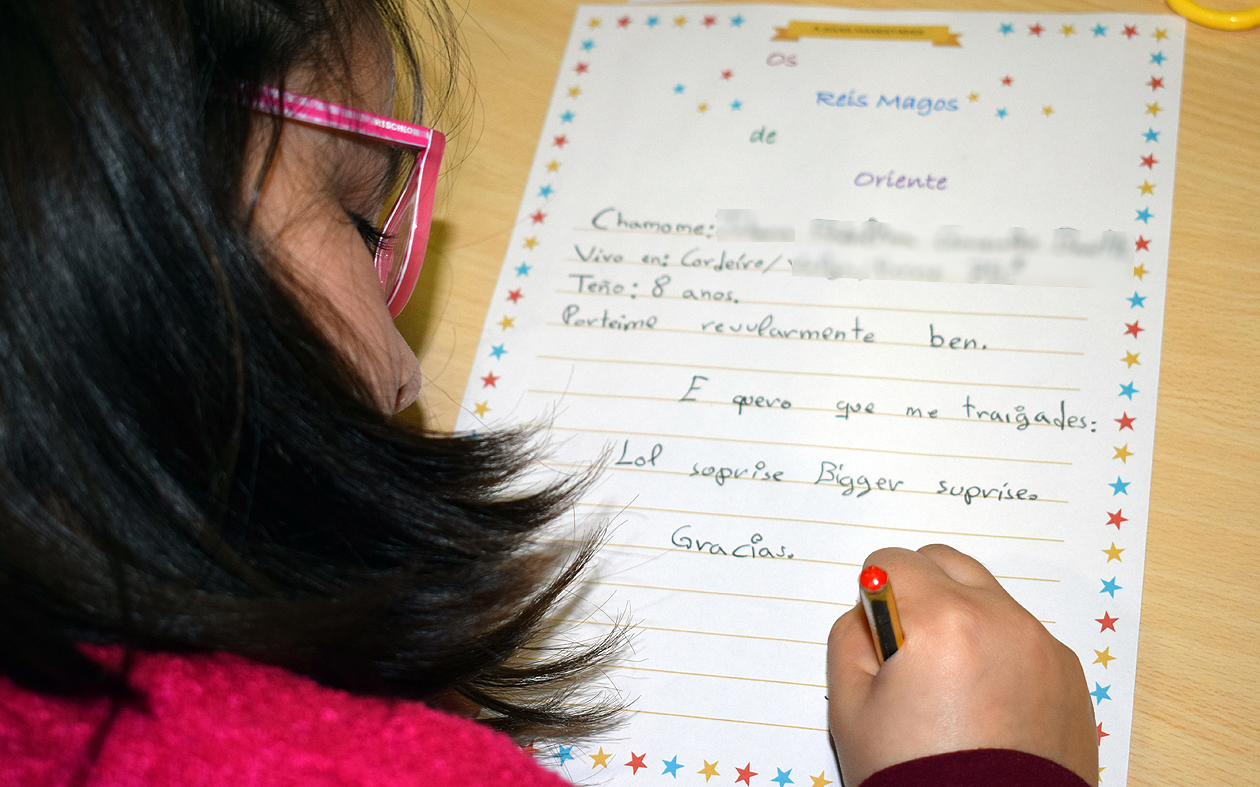 Os
Reis Magos
de
Oriente
Chamome:
Vivo en: Cordeiro/
Teño: 8 anos.
Porteime revularmente ben.
E quero que me traigades:
Lol soprise Bigger suprise.
Gracias.